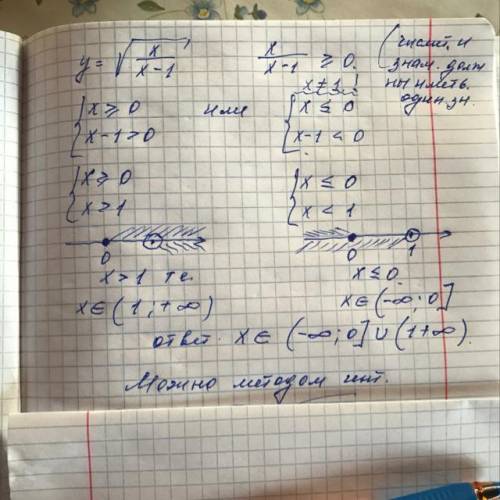 y = √(x/(x-1))    x/(x-1) ≥ 0.    (числит. и
знам. долж
x ≠ 1!    ны иметь
один. зн.
{x ≥ 0    или    {x ≤ 0
{x-1 > 0    {x-1 < 0
{x ≥ 0    {x ≤ 0
{x > 1    {x < 1
0    0    1
x > 1 т.е.    x ≤ 0
x ∈ (1; +∞)    x ∈ (-∞; 0]
ответ. x ∈ (-∞; 0] ∪ (1 +∞).
Можно методом инт.